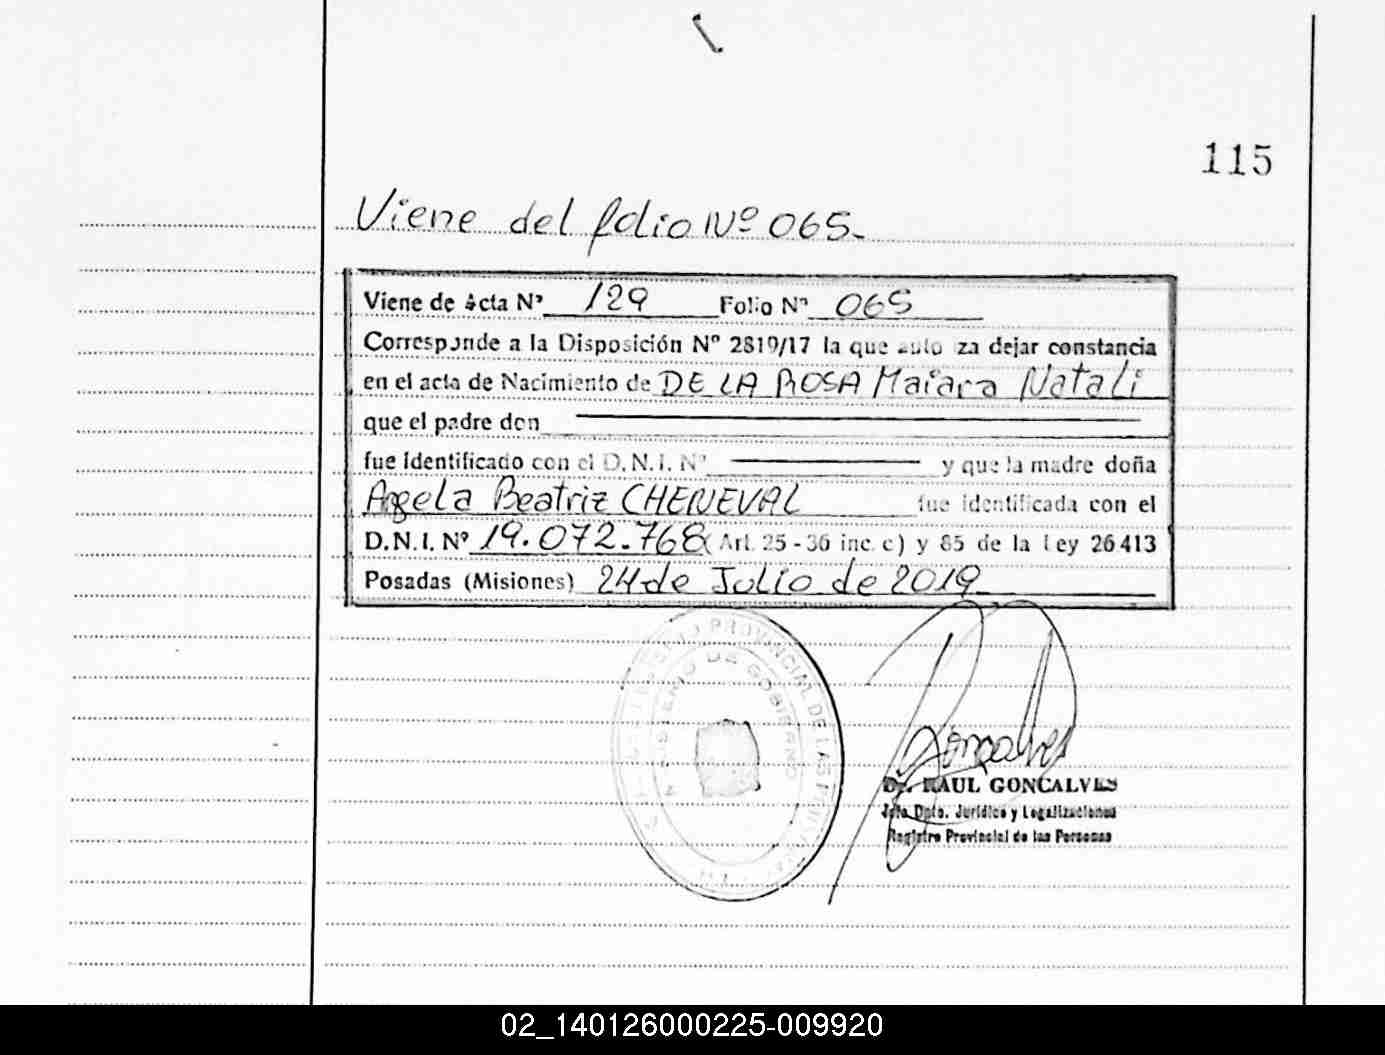 115
Viene del folio Nº 065.
Viene de Acta Nº 129 Folio Nº 065
Corresponde a la Disposición Nº 2819/17 la que autoriza dejar constancia
en el acta de Nacimiento de DE LA ROSA Maiara Natali
que el padre don
fue identificado con el D.N.I. Nº y que la madre doña
Angela Beatriz CHENEVAL fue identificada con el
D.N.I. Nº 19.072.768 (Art. 25 - 36 inc. c) y 85 de la Ley 26413
Posadas (Misiones) 24 de Julio de 2019
REGISTRO PROVINCIAL DE LAS PERSONAS
MINISTERIO DE GOBIERNO
Goncalves
Dr. RAUL GONCALVES
Jefe Dpto. Jurídico y Legalizaciones
Registro Provincial de las Personas
02_140126000225-009920